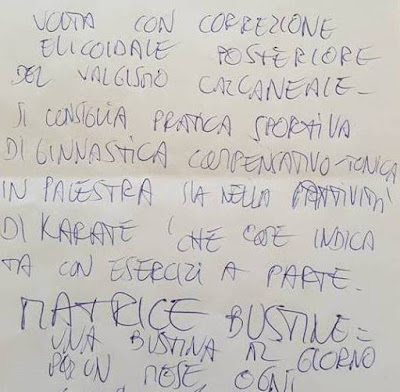 VOLTA CON CORREZIONE
ELICOIDALE POSTERIORE
DEL VALGISMO CALCANEALE-
SI CONSIGLIA PRATICA SPORTIVA
DI GINNASTICA COMPENSATIVO-TONICA
IN PALESTRA SIA NELLA
DI KARATE CHE COSE INDICA
TA CON ESERCIZI A PARTE.
MATRICE BUSTINE=
UNA BUSTINA AL GIORNO
PER UN MESE OGNI